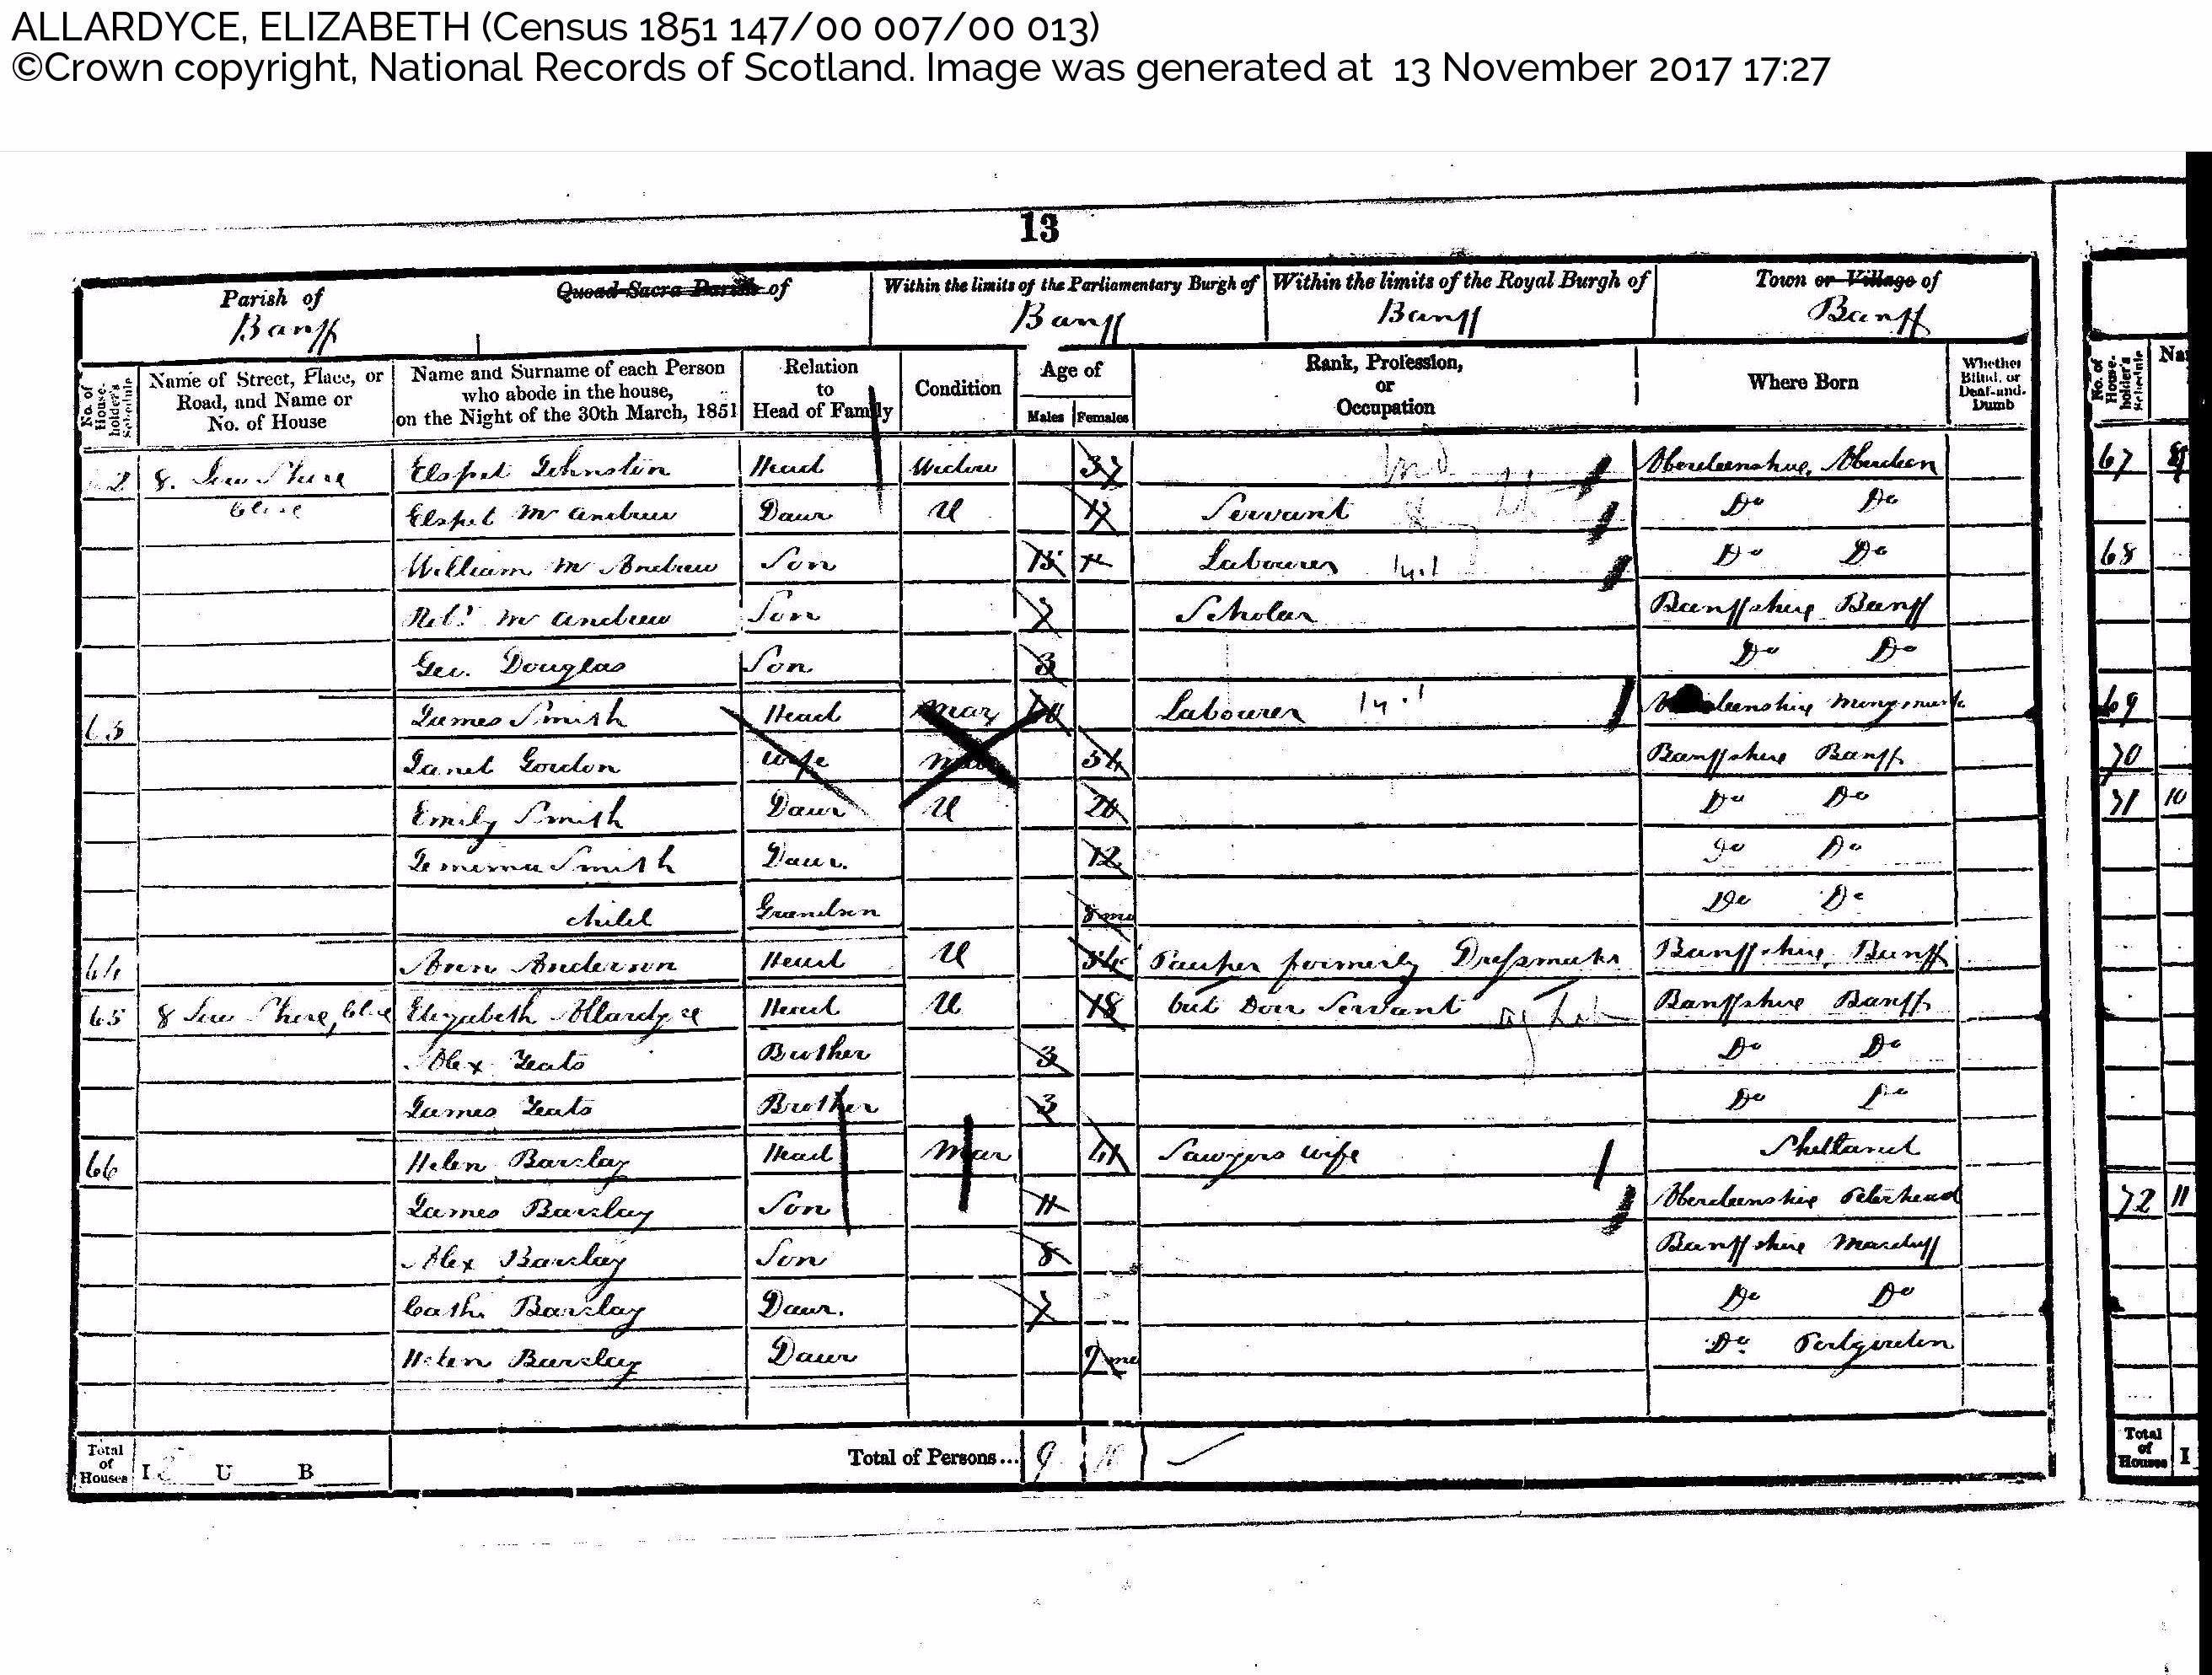 ALLARDYCE, ELIZABETH (Census 1851 147/00 007/00 013)
©Crown copyright, National Records of Scotland. Image was generated at 13 November 2017 17:27
13
Parish of Quoad Sacra Parish of Within the limits of the Parliamentary Burgh of Within the limits of the Royal Burgh of Town or Village of
Banff Banff Banff Banff
No. of House-holder's Schedule Name of Street, Place, or Road, and Name or No. of House Name and Surname of each Person who abode in the house, on the Night of the 30th March, 1851 Relation to Head of Family Condition Age of Males Females Rank, Profession, or Occupation Where Born Whether Blind, or Deaf-and-Dumb
2 8. Shore Elspet Johnston Head Widow 37 Aberdeenshire, Aberdeen
Close Elspet Mc Andrew Daur U 17 Servant Do Do
William Mc Andrew Son 15 Labourer Do Do
Robt Mc Andrew Son 7 Scholar Banffshire Banff
Geo. Douglas Son 3 Do Do
63 James Smith Head Mar Labourer Monymusk
Janet Gordon Wife Mar 54 Banffshire Banff
Emily Smith Daur U 20 Do Do
Jemima Smith Daur. 12 Do Do
child Grandson 8 mo Do Do
64 Ann Anderson Head U 54 Pauper formerly Dressmaker Banffshire, Banff
65 8 Shore, Close Elizabeth Allardyce Head U 18 Out Door Servant Banffshire Banff
Alex Yeats Brother 3 Do Do
James Yeats Brother 3 Do Do
66 Helen Barclay Head Mar 41 Sawyers wife Shetland
James Barclay Son 11 Aberdeenshire Peterhead
Alex Barclay Son 8 Banffshire Macduff
Cath. Barclay Daur. 7 Do Do
Helen Barclay Daur 9 mo Do Portgordon
Total of Houses I U B Total of Persons... 9 10
67
68
69
70
71 10
72 11
Total of Houses I